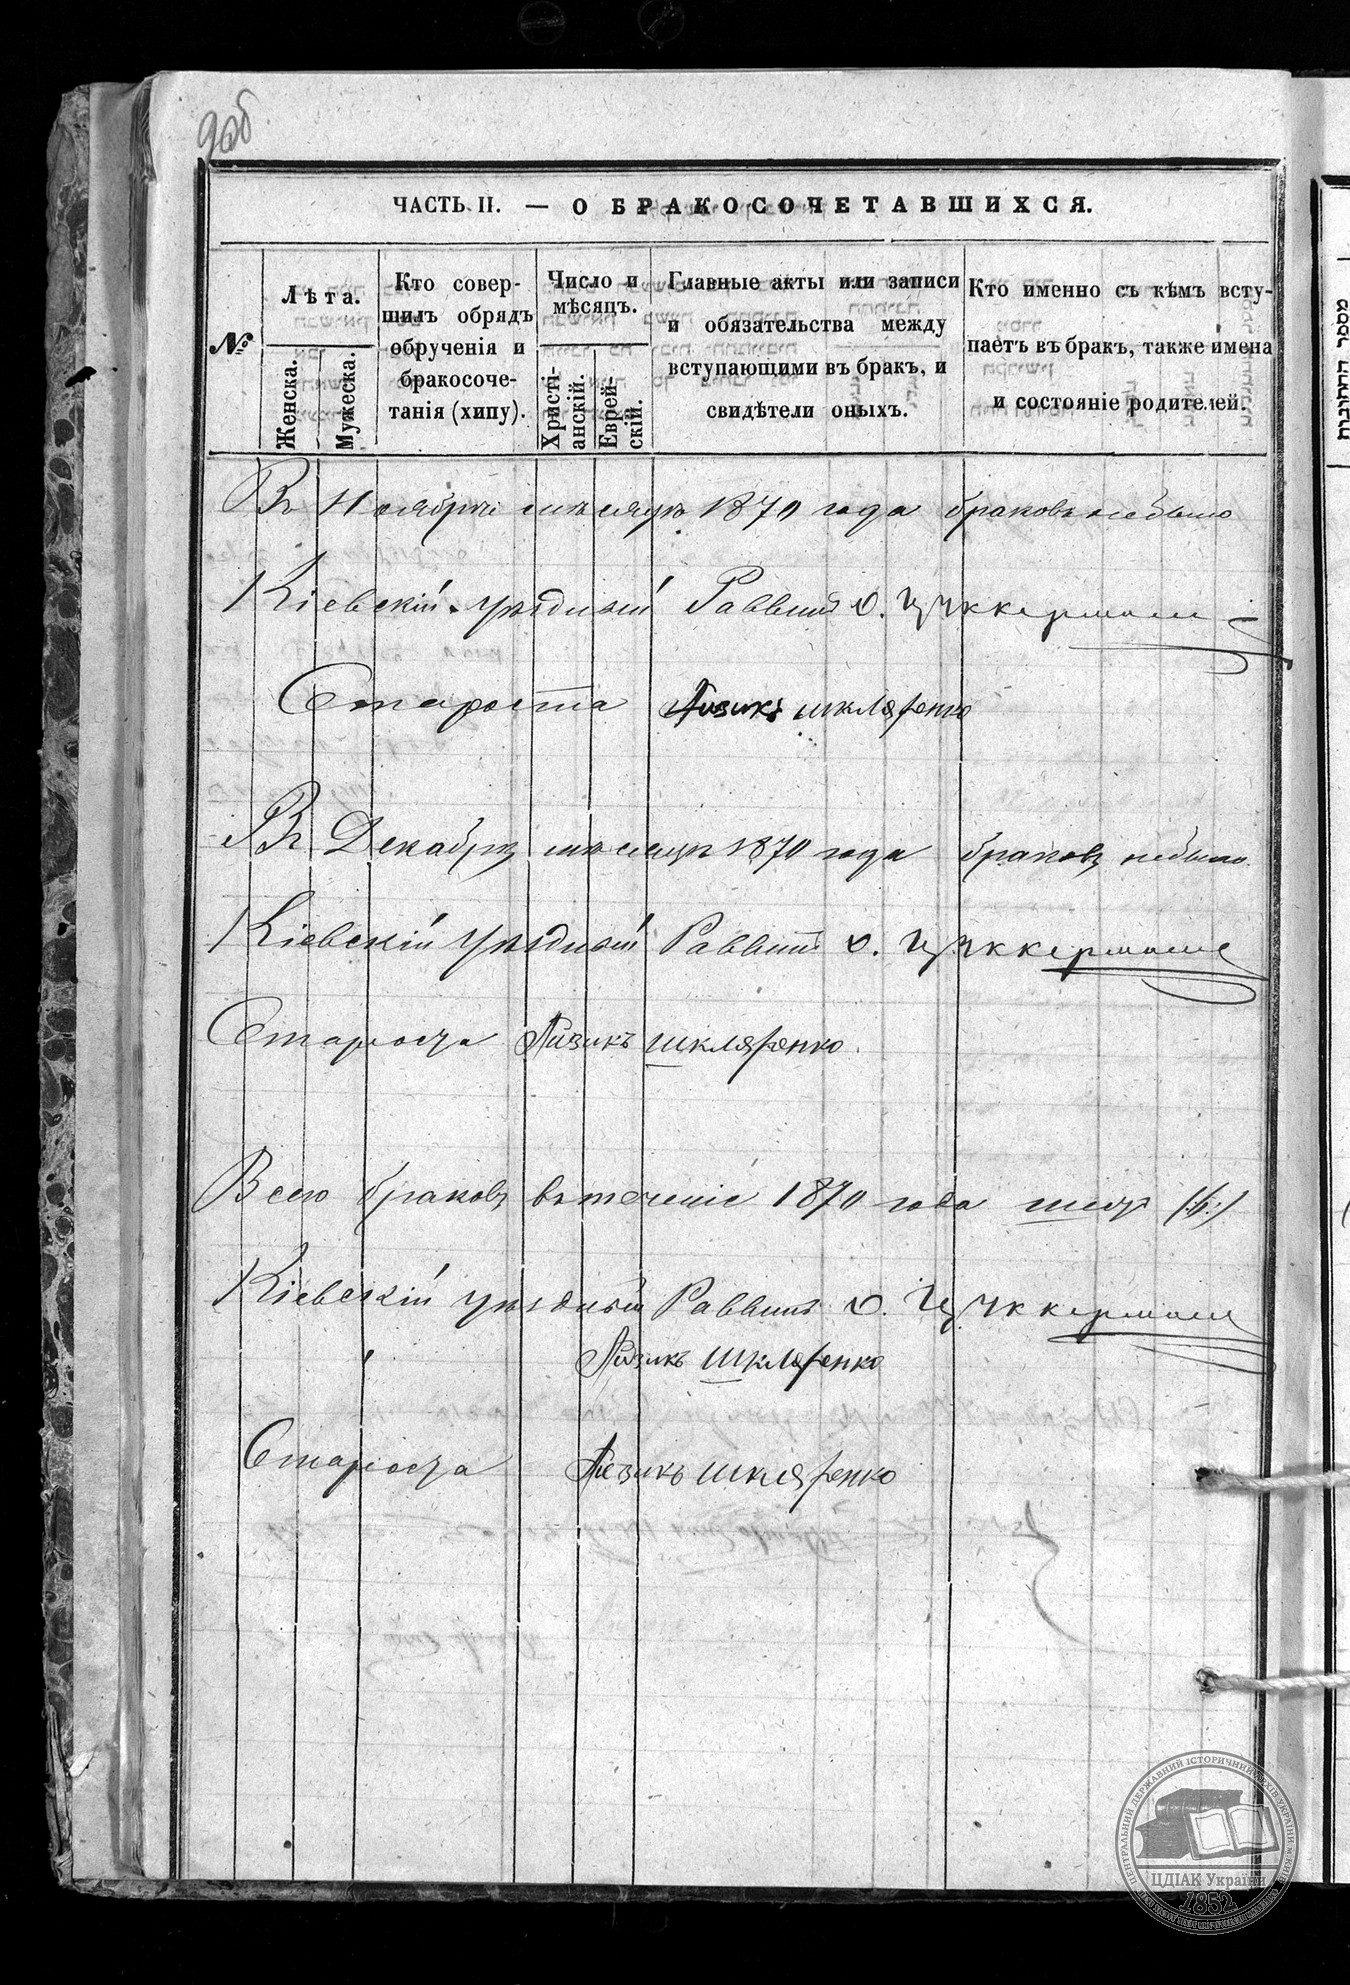 9об
ЧАСТЬ II. — О БРАКОСОЧЕТАВШИХСЯ.
№
Лѣта.
Женска.
Мужеска.
Кто совер-
шилъ обрядъ
обрученія и
бракосоче-
танія (хипу).
Число и
мѣсяцъ.
Христі-
анскій.
Еврей-
скій.
Главные акты или записи
и обязательства между
вступающими въ бракъ, и
свидѣтели оныхъ.
Кто именно съ кѣмъ всту-
паетъ въ бракъ, также имена
и состояніе родителей.
Въ Ноябрѣ мѣсяцѣ 1870 года браковъ небыло
Кіевскій уѣздный Раввинъ О. Цуккерманъ
Староста Айзикъ Шкляренко
Въ Декабрѣ мѣсяцѣ 1870 года браковъ небыло
Кіевскій уѣздный Раввинъ О. Цуккерманъ
Староста Айзикъ Шкляренко
Всего браковъ втеченіе 1870 года шесть (:6:)
Кіевскій уѣздный Раввинъ О. Цуккерманъ
Айзикъ Шкляренко
Староста Айзикъ Шкляренко
ЦЕНТРАЛЬНИЙ ДЕРЖАВНИЙ ІСТОРИЧНИЙ АРХІВ УКРАЇНИ М.КИЇВ
ЦДІАК України
1852